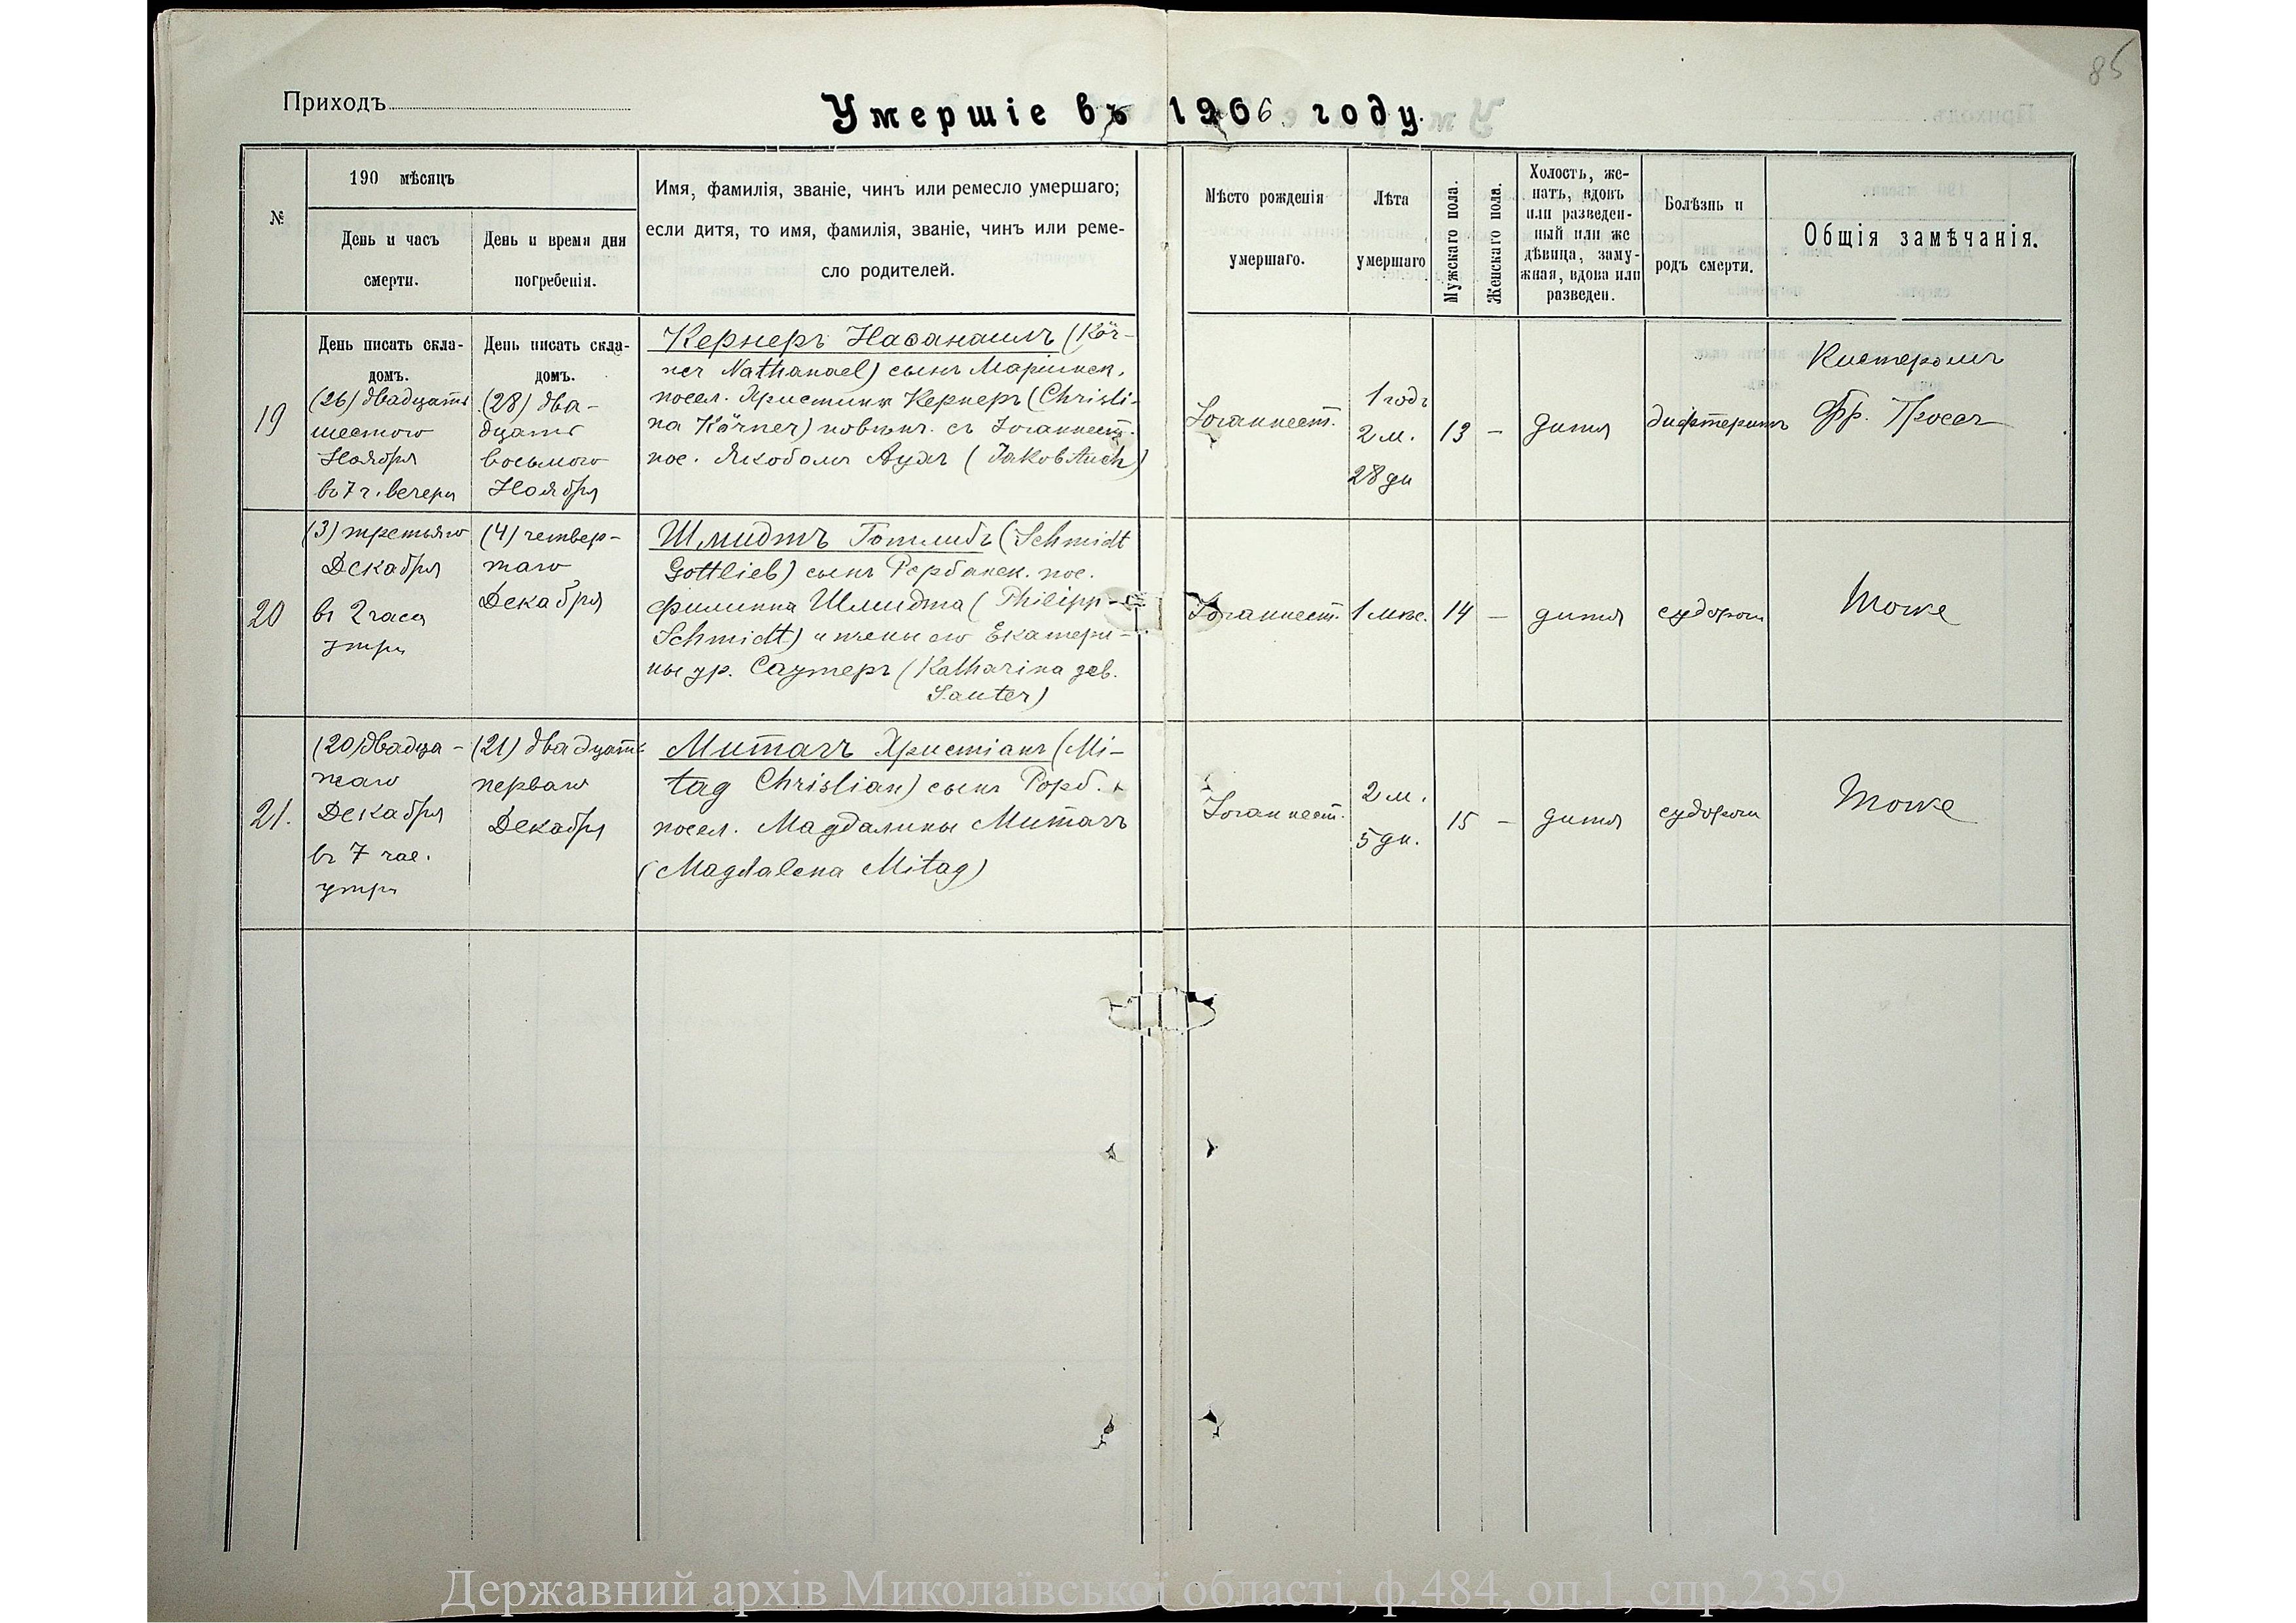 85
Приходъ
Умершіе въ 1906 году.
№
190 мѣсяцъ
День и часъ
смерти.
День и время дня
погребенія.
Имя, фамилія, званіе, чинъ или ремесло умершаго;
если дитя, то имя, фамилія, званіе, чинъ или реме-
сло родителей.
Мѣсто рожденія
умершаго.
Лѣта
умершаго
Мужскаго пола.
Женскаго пола.
Холостъ, же-
натъ, вдовъ
или разведен-
ный или же
дѣвица, заму-
жная, вдова или
разведен.
Болѣзнь и
родъ смерти.
Общія замѣчанія.
День писать скла-
домъ.
День писать скла-
домъ.
19
(26) двадцать
шестого
Ноября
въ 7 ч. вечера
(28) два-
дцать
восьмого
Ноября
Кернеръ Наѳанаилъ (Kör-
ner Nathanael) сынъ Маріинск.
посел. Христины Кернеръ (Christi-
na Körner) повѣнч. съ Іоганнест.
пос. Якобомъ Аухъ (Jakob Auch)
Іоганнест.
1 годъ
2 м.
28 дн
13
-
дитя
дифтеритъ
Кистеромъ
Фр.
20
(3) третьяго
Декабря
въ 2 часа
утра
(4) четвер-
таго
Декабря
Шмидтъ Готлибъ (Schmidt
Gottlieb) сынъ Рорбахск. пос.
Филиппа Шмидта (Philipp
Schmidt) и жены его Екатери-
ны ур. Саутеръ (Katharina geb.
Sauter)
Іоганнест.
1 мѣс.
14
-
дитя
судороги
Тоже
21.
(20) двадца-
таго
Декабря
въ 7 час.
утра
(21) двадцать
перваго
Декабря
Митагъ Христіанъ (Mi-
tag Christian) сынъ Рорб.
посел. Магдалины Митагъ
(Magdalena Mitag)
Іоганнест.
2 м.
5 дн.
15
-
дитя
судороги
Тоже
Державний архів Миколаївської області, ф.484, оп.1, спр.2359